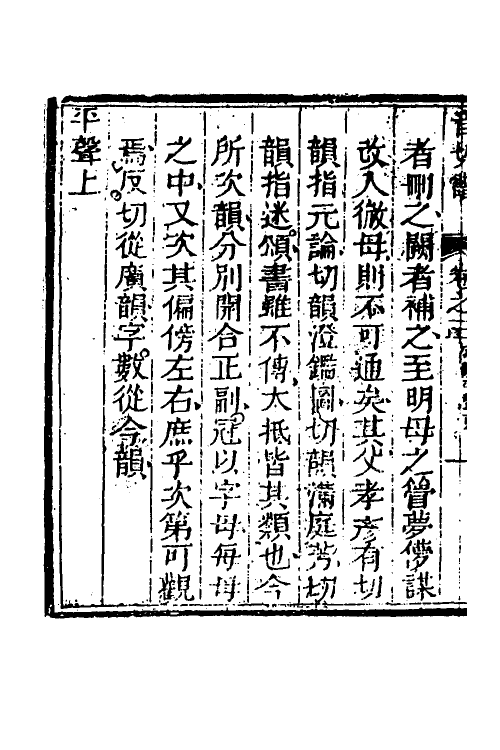 者刪之闕者補之至明母之瞢夢儚謀
改入微母則不可通矣其父孝彥有切
韻指元論切韻澄鑑圖切韻滿庭芳切
韻指迷頌書雖不傳大抵皆其類也今
所次韻分別開合正副冠以字母每母
之中又次其偏傍左右庶乎次第可觀
焉反切從廣韻字數從今韻
平聲上